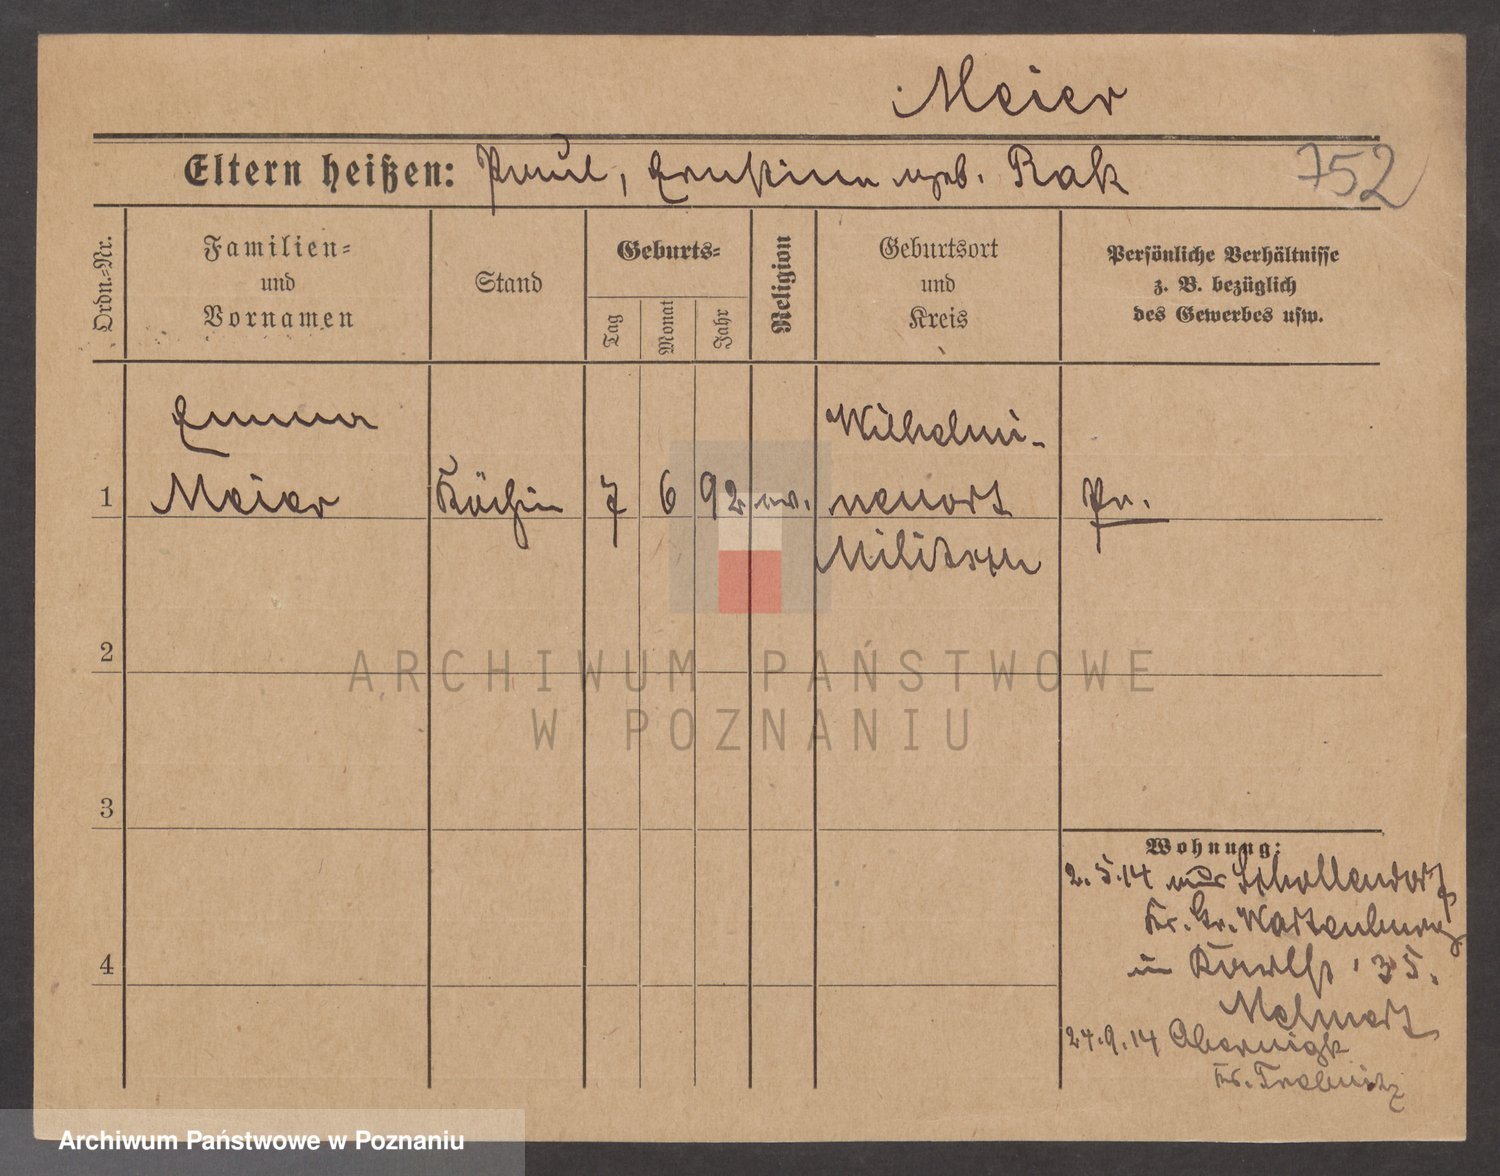 Meier
Eltern heißen: Paul, Ernstine geb. Rak
752
Ordn.-Nr.
Familien-
und
Vornamen
Stand
Geburts-
Tag
Monat
Jahr
Religion
Geburtsort
und
Kreis
Persönliche Verhältnisse
z. B. bezüglich
des Gewerbes usw.
Emma
Wilhelmi-
1 Meier Köchin 7 6 92 ev. nenort Pr.
Militsch
ARCHIWUM PAŃSTWOWE
W POZNANIU
2
3
4
Wohnung:
2.5.14 aus Schollendorf
Kr. Gr. Wartenberg
in 35.
24.9.14 Obernigk
Kr. Trebnitz
Archiwum Państwowe w Poznaniu